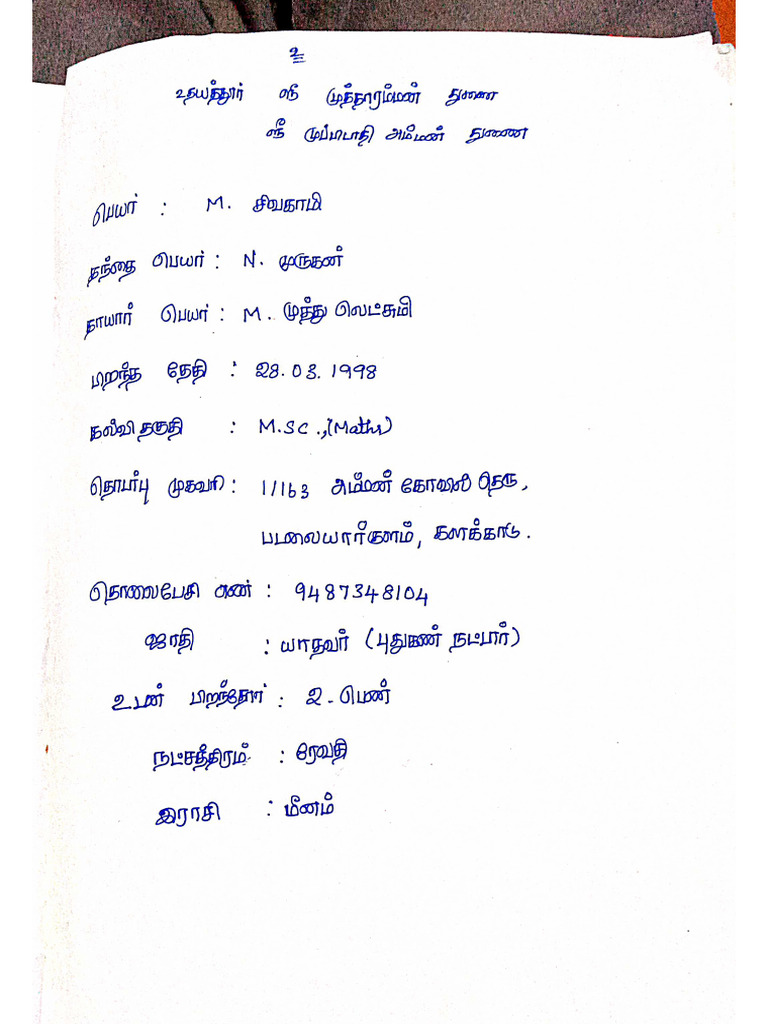 உ
உதயத்தூர் ஸ்ரீ முத்தாரம்மன் துணை
ஸ்ரீ முப்பிடாதி அம்மன் துணை
பெயர் : M. சிவகாமி
தந்தை பெயர் : N. முருகன்
தாயார் பெயர் : M. முத்து லெட்சுமி
பிறந்த தேதி : 28.03.1998
கல்வி தகுதி : M.Sc.,(Maths)
தொடர்பு முகவரி : 1/163 அம்மன் கோவில் தெரு,
படலையார்குளம், களக்காடு.
தொலைபேசி எண் : 9487348104
ஜாதி : யாதவர் (புதுகண் நட்பார்)
உடன் பிறந்தோர் : 2-பெண்
நட்சத்திரம் : ரேவதி
இராசி : மீனம்